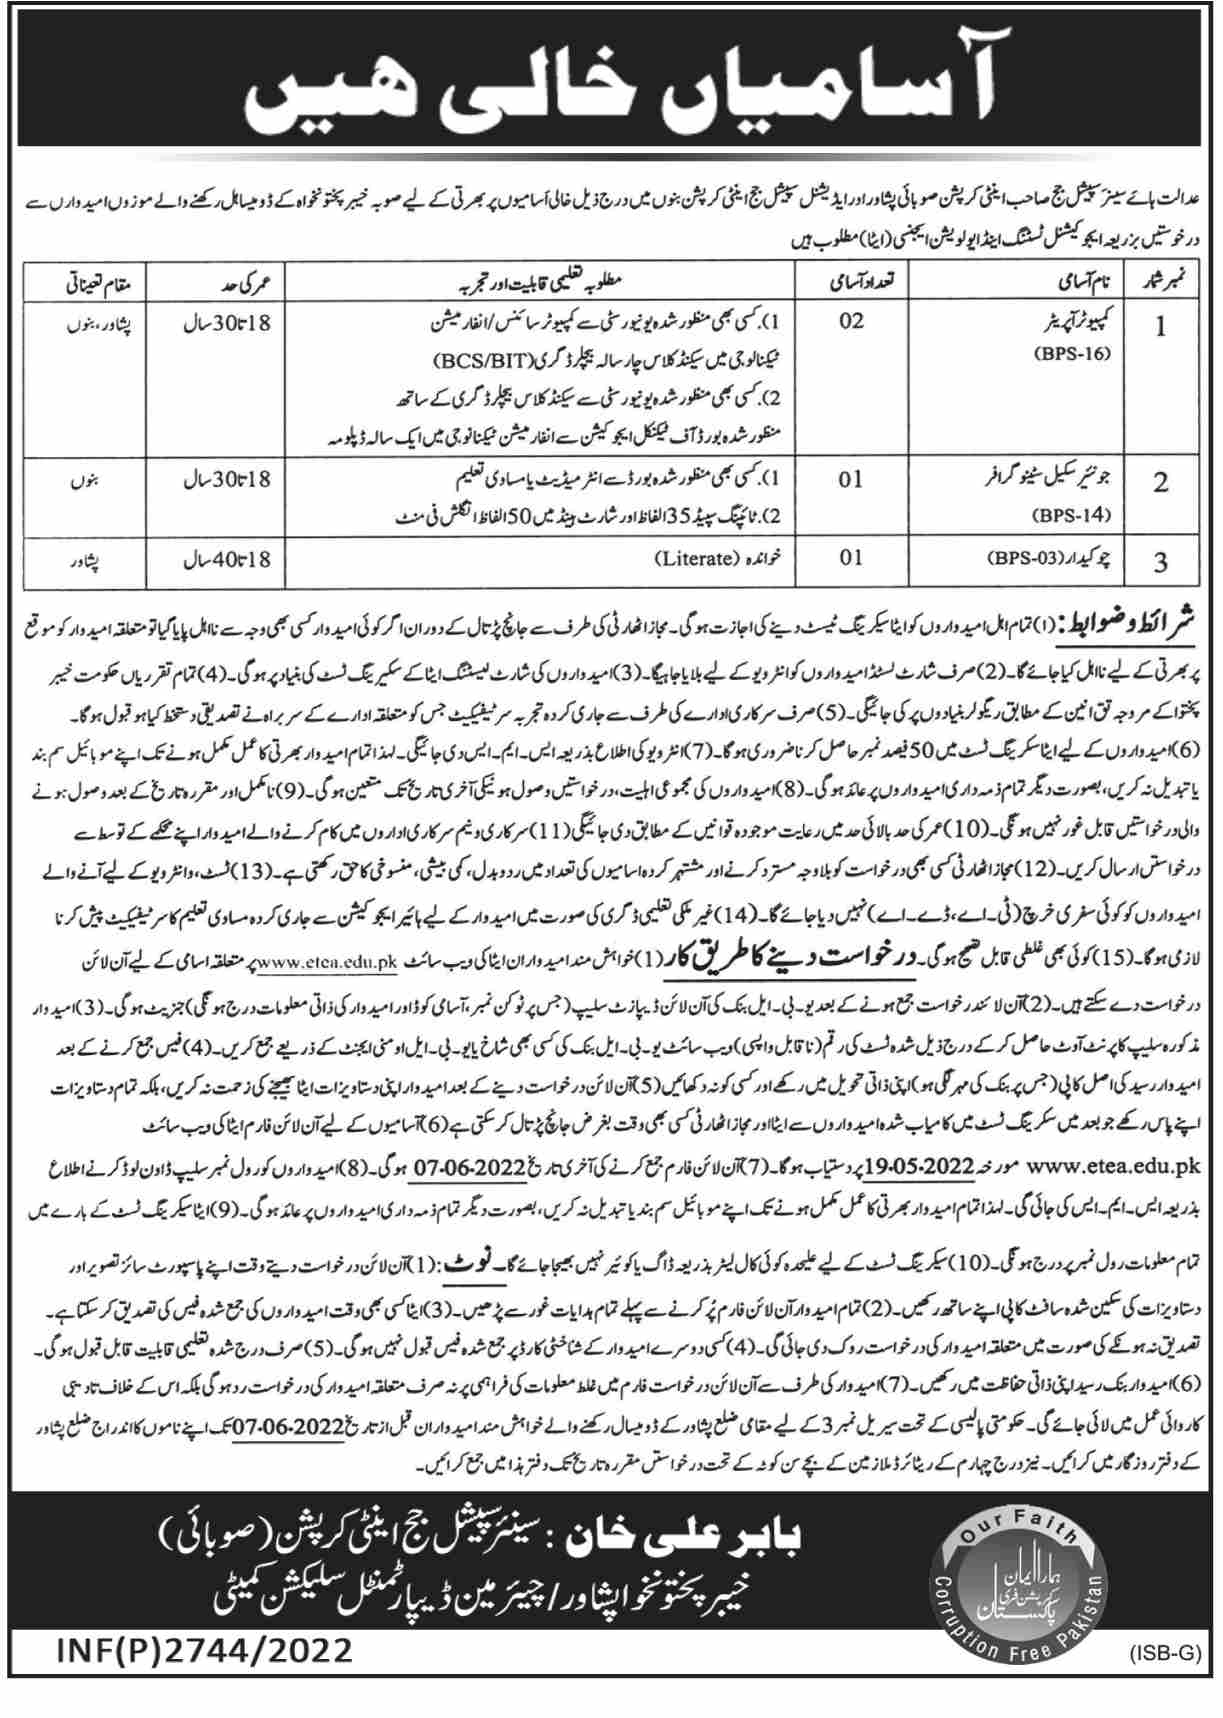 آسامیاں خالی ہیں
عدالت ہائے سینئر سپیشل جج صاحب اینٹی کرپشن صوبائی پشاور اور ایڈیشنل سپیشل جج اینٹی کرپشن بنوں میں درج ذیل خالی آسامیوں پر بھرتی کے لیے صوبہ خیبر پختونخواہ کے ڈومیسائل رکھنے والے موزوں امیدواروں سے
درخوستیں بزریعہ ایجوکیشنل ٹسٹنگ اینڈ ایولویشن ایجنسی (ایٹا) مطلوب ہیں
نمبر شمار نام آسامی تعداد آسامی مطلوبہ تعلیمی قابلیت اور تجربہ عمر کی حد مقام تعیناتی
1 کمپیوٹر آپریٹر (BPS-16) 02 1). کسی بھی منظور شدہ یونیورسٹی سے کمپیوٹر سائنس/انفارمیشن 18 تا 30 سال پشاور، بنوں
ٹیکنالوجی میں سیکنڈ کلاس چار سالہ بیچلر ڈگری (BCS/BIT)
2). کسی بھی منظور شدہ یونیورسٹی سے سیکنڈ کلاس بیچلر ڈگری کے ساتھ
منظور شدہ بورڈ آف ٹیکنکل ایجوکیشن سے انفارمیشن ٹیکنانوجی میں ایک سالہ ڈپلومہ
2 جونئیر سکیل سٹینوگرافر (BPS-14) 01 1). کسی بھی منظور شدہ بورڈ سے انٹر میڈیٹ یا مساوی تعلیم 18 تا 30 سال بنوں
2). ٹائپنگ سپیڈ 35 الفاظ اور شارٹ ہینڈ میں 50 الفاظ انگلش فی منٹ
3 چوکیدار (BPS-03) 01 خواندہ (Literate) 18 تا 40 سال پشاور
شرائط و ضوابط: (۱) تمام اہل امیدواروں کو ایٹا سیکرینگ ٹیسٹ دینے کی اجازت ہوگی۔ مجاز اتھارٹی کی طرف سے جانچ پڑتال کے دوران اگر کوئی امیدوار کسی بھی وجہ سے نااہل پایا گیا تو متعلقہ امیدوار کو موقع
پر بھرتی کے لیے نااہل کیا جائے گا۔ (2) صرف شارٹ لسٹڈ امیدواروں کو انٹرویو کے لیے بلایا جاہیگا۔ (3) امیدواروں کی شارٹ لیسٹنگ ایٹا کے سکیرینگ ٹسٹ کی بنیاد پر ہوگی۔ (4) تمام تقرریاں حکومت خیبر
پختوا کے مروجہ قوانین کے مطابق ریگولر بنیادوں پر کی جائیگی۔ (5) صرف سرکاری ادارے کی طرف سے جاری کردہ تجربہ سرٹیفیکیٹ جس کو متعلقہ ادارے کے سربراہ نے تصدیقی دستخط کیا ہو قبول ہوگا۔
(6) امیدواروں کے لیے ایٹا سکرینگ ٹسٹ میں 50 فیصد نمبر حاصل کرنا ضروری ہوگا۔ (7) انٹرویو کی اطلاع بذریعہ ایس۔ایم۔ایس دی جائیگی۔ لہذا تمام امیدوار بھرتی کا عمل مکمل ہونے تک اپنے موبائیل سم بند
یا تبدیل نہ کریں، بصورت دیگر تمام ذمہ داری امیدواروں پر عائد ہوگی۔ (8) امیدواروں کی مجموعی اہلیت، درخواستیں وصول ہونیکی آخری تاریخ تک متعین ہوگی۔ (9) نامکمل اور مقررہ تاریخ کے بعد وصول ہونے
والی درخواستیں قابل غور نہیں ہونگی۔ (10) عمر کی حد بالائی حد میں رعایت موجودہ قوانین کے مطابق دی جائیگی (11) سرکاری و نیم سرکاری اداروں میں کام کرنے والے امیدوار اپنے محکمے کے توسط سے
درخواستں ارسال کریں۔ (12) مجاز اتھارٹی کسی بھی درخواست کو بلاوجہ مسترد کرنے اور مشتہر کردہ اسامیوں کی تعداد میں ردوبدل، کمی بیشی، منسوخی کا حق رکھتی ہے۔ (13) ٹسٹ، و انٹرویو کے لیے آنے والے
امیدواروں کو کوئی سفری خرچ (ٹی۔اے، ڈے۔اے) نہیں دیا جائے گا۔ (14) غیر ملکی تعلیمی ڈگری کی صورت میں امیدوار کے لیے ہائیر ایجوکیشن سے جاری کردہ مساوی تعلیم کا سرٹیفیکیٹ پیش کرنا
لازمی ہوگا۔ (15) کوئی بھی غلطی قابل تصیح ہوگی۔ درخواست دینے کا طریق کار (1) خواہش مند امیدواران ایٹا کی ویب سائٹ www.etea.edu.pk پر متعلقہ اسامی کے لیے آن لائن
درخواست دے سکتے ہیں۔ (2) آن لائند رخواست جمع ہونے کے بعد یو۔بی۔ایل بنک کی آن لائن ڈیپازٹ سلیپ (جس پر ٹوکن نمبر، آسامی کوڈ اور امیدوار کی ذاتی معلومات درج ہونگی) جنریٹ ہوگی۔ (3) امیدوار
مذکورہ سلیپ کا پرنٹ آوٹ حاصل کر کے درج ذیل شدہ ٹسٹ کی رقم (ناقابل واپسی) ویب سائٹ یو۔بی۔ایل بنک کی کسی بھی شاخ یا یو۔بی۔ایل اومنی ایجنٹ کے ذریعے جمع کریں۔ (4) فیس جمع کرنے کے بعد
امیدوار رسید کی اصل کاپی (جس پر بنک کی مہر لگی ہو) اپنی ذاتی تحویل میں رکھے اور کسی کو نہ دکھائیں (5) آن لائن درخواست دینے کے بعد امیدوار اپنی دستاویزات ایٹا بھیجنے کی زحمت نہ کریں، بلکہ تمام دستاویزات
اپنے پاس رکھے جو بعد میں سکرینگ ٹسٹ میں کامیاب شدہ امیدواروں سے ایٹا اور مجاز اتھارٹی کسی بھی وقت بغرض جانچ پڑتال کر سکتی ہے (6) آسامیوں کے لیے آن لائن فارم ایٹا کی ویب سائٹ
www.etea.edu.pk مورخہ 19-05-2022 پر دستیاب ہوگا۔ (7) آن لائن فارم جمع کرنے کی آخری تاریخ 07-06-2022 ہوگی۔ (8) امیدواروں کو رول نمبر سلیپ ڈاون لوڈ کرنے اطلاع
بذریعہ ایس۔ایم۔ایس کی جائی گی۔ لہذا تمام امیدوار بھرتی کا عمل مکمل ہونے تک اپنے موبائیل سم بند یا تبدیل نہ کریں، بصورت دیگر تمام ذمہ داری امیدواروں پر عائد ہوگی۔ (9) ایٹا سیکرینگ ٹسٹ کے بارے میں
تمام معلومات رول نمبر پر درج ہونگی۔ (10) سیکرینگ ٹسٹ کے لیے علیحدہ کوئی کال لیٹر بذریعہ ڈاگ یا کوئیر نہیں بھیجا جائے گا۔ نوٹ: (1) آن لائن درخواست دیتے وقت اپنے پاسپورٹ سائز تصویر اور
دستاویزات کی سکین شدہ سافٹ کاپی اپنے ساتھ رکھیں۔ (2) تمام امیدوار آن لائن فارم پُر کرنے سے پہلے تمام ہدایات غور سے پڑھیں۔ (3) ایٹا کسی بھی وقت امیدواروں کی جمع شدہ فیس کی تصدیق کر سکتا ہے۔
تصدیق نہ ہونگے کی صورت میں متعلقہ امیدوار کی درخواست روک دی جائی گی۔ (4) کسی دوسرے امیدوار کے شناختی کارڈ پر جمع شدہ فیس قبول نہیں ہوگی۔ (5) صرف درج شدہ تعلیمی قابلیت قابل قبول ہوگی۔
(6) امیدوار بنک رسید اپنی ذاتی حفاظت میں رکھیں۔ (7) امیدوار کی طرف سے آن لائن درخواست فارم میں غلط معلومات کی فراہمی پر نہ صرف متعلقہ امیدوار کی درخواست رد ہوگی بلکہ اس کے خلاف تادیبی
کاروائی عمل میں لائی جائے گی۔ حکومتی پالیسی کے تحت سیریل نمبر 3 کے لیے مقامی ضلع پشاور کے ڈومیسال رکھنے والے خواہش مند امیدواران قبل از تاریخ 07-06-2022 تک اپنے ناموں کا اندراج ضلع پشاور
کے دفتر روزگار میں کرائیں۔ نیز درج چہارم کے ریٹائرڈ ملازمین کے بچے سن کوٹہ کے تحت درخواستں مقررہ تاریخ تک دفتر ہذا میں جمع کرائیں۔
بابر علی خان: سینئر سپیشل جج اینٹی کرپشن (صوبائی)
خیبر پختونخوا پشاور/چیئرمین ڈیپارٹمنٹل سلیکشن کمیٹی
Our Faith
ہمارا ایمان
کرپشن فری
پاکستان
Corruption Free Pakistan
INF(P)2744/2022
(ISB-G)